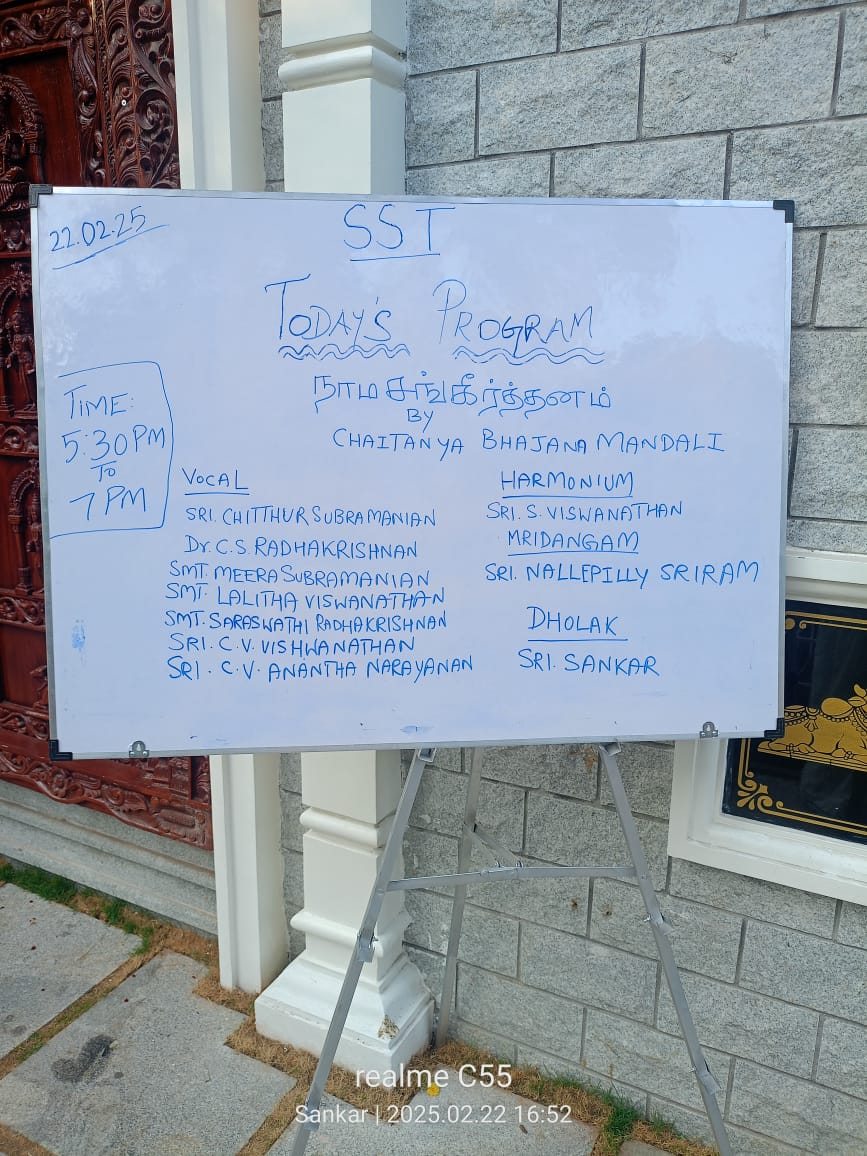 22.02.25
SST
TODAY'S PROGRAM
நாமசங்கீர்த்தனம்
BY
CHAITANYA BHAJANA MANDALI
TIME:
5:30 PM
TO
7 PM
VOCAL
SRI. CHITTHUR SUBRAMANIAN
Dr. C.S. RADHAKRISHNAN
SMT. MEERA SUBRAMANIAN
SMT. LALITHA VISWANATHAN
SMT. SARASWATHI RADHAKRISHNAN
SRI. C.V. VISHWANATHAN
SRI. C.V. ANANTHA NARAYANAN
HARMONIUM
SRI. S. VISWANATHAN
MRIDANGAM
SRI. NALLEPILLY SRIRAM
DHOLAK
SRI. SANKAR
realme C55
Sankar | 2025.02.22 16:52